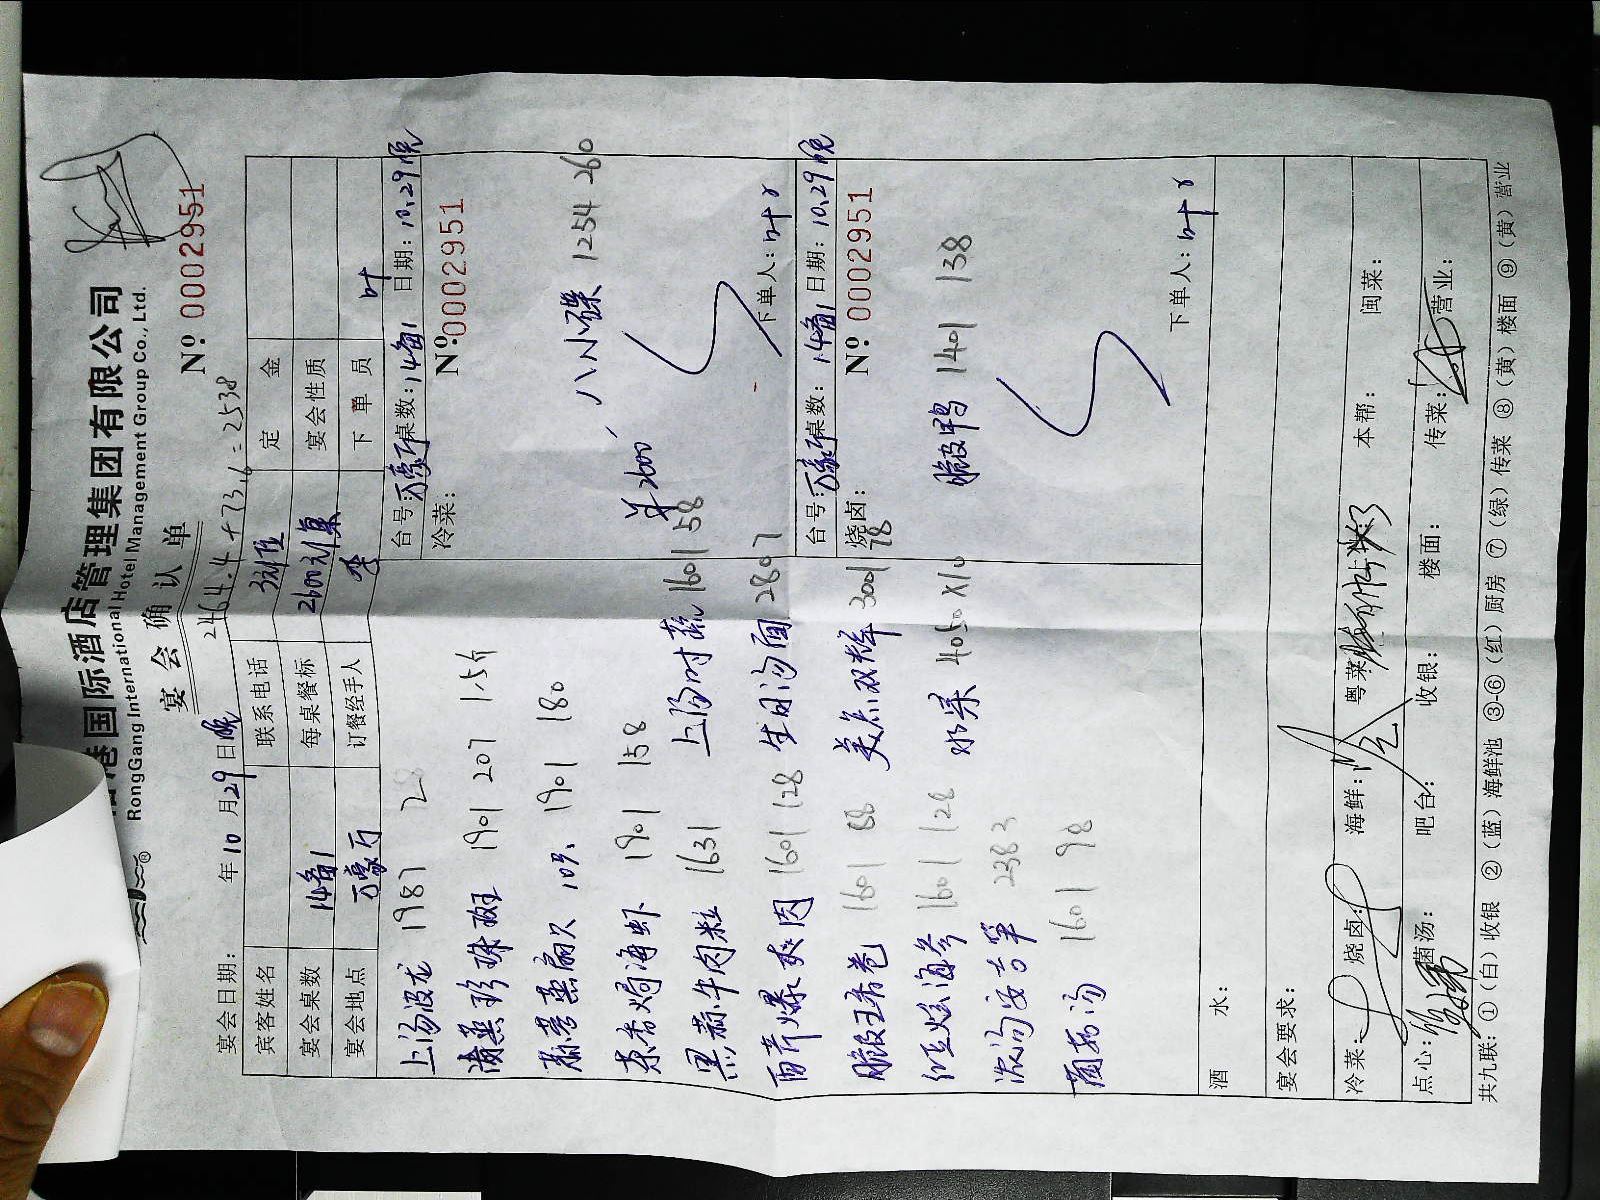 港国际酒店管理集团有限公司
RongGang International Hotel Management Group Co., Ltd.
宴会确认单
№ 0002951
2464.4+73.6=2538
宴会日期: 年10月29日晚
宾客姓名 联系电话 定金
宴会桌数 14备1 每桌餐标 2600 宴会性质
宴会地点 万豪厅 订餐经手人 李 下单员 叶
台号:万豪厅 桌数:14备1 日期:10.29晚
冷菜:
№ 0002951
八小碟 1254 260
单2600
下单人:叶
台号:万豪厅 桌数:14备1 日期:10.29晚
烧卤:
№ 0002951
78
脆皮鸭 1401 138
下单人:叶
上汤波龙 1987 28
清蒸珍珠斑 1901 207 1.5斤
蒜蓉蒸扇贝 10只 1901 180
焗海虾 1901 158
黑蒜牛肉粒 1631
上汤时蔬 1601 58
爆爽肉 1601 128
生日汤面 2807
脆皮 卷 1601 88
美点双辉 3001
海参 1601 128
水果 4050 X10
2383
汤 1601 98
酒水:
宴会要求:
冷菜: 烧卤: 海鲜: 粤菜: 本帮: 闽菜:
点心: 菌汤: 吧台: 收银: 楼面: 传菜: 营业:
共九联:①(白)收银 ②(蓝)海鲜池 ③-⑥(红)厨房 ⑦(绿)传菜 ⑧(黄)楼面 ⑨(黄)营业